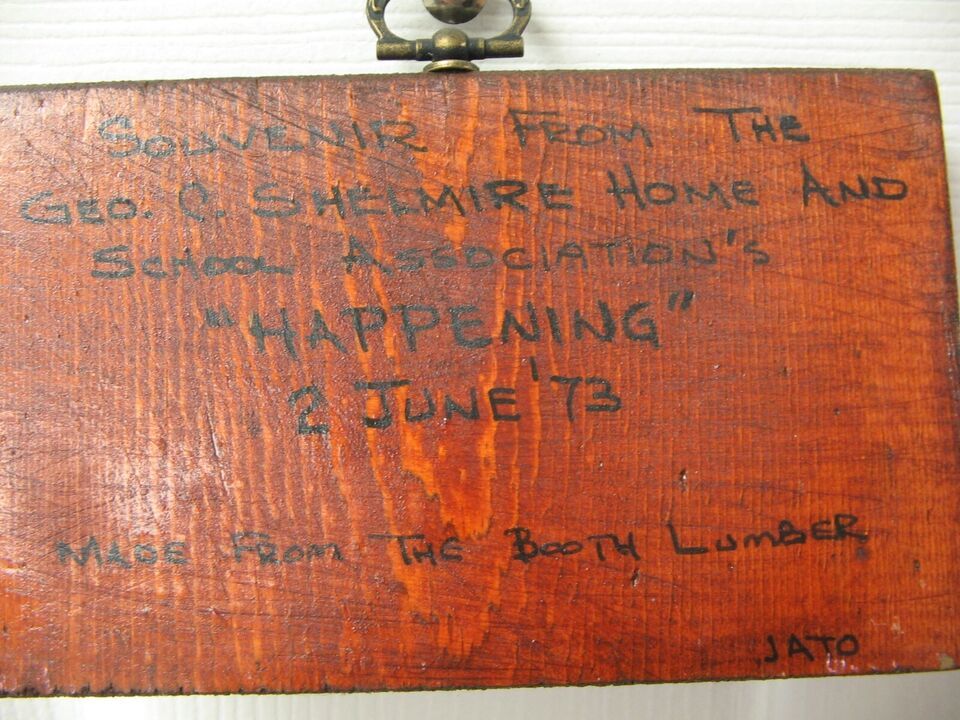 SOUVENIR FROM THE
GEO. C. SHELMIRE HOME AND
SCHOOL ASSOCIATION'S
"HAPPENING"
2 JUNE '73
MADE FROM THE BOOTH LUMBER
JATO